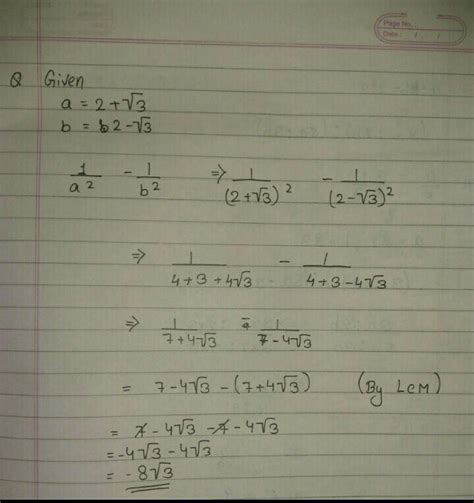 Page No. :
Date : / /
Q Given
a = 2+√3
b = 2-√3
1/a² - 1/b² ⇒ 1/(2+√3)² - 1/(2-√3)²
⇒ 1/(4+3+4√3) - 1/(4+3-4√3)
⇒ 1/(7+4√3) - 1/(7-4√3)
= 7-4√3 - (7+4√3) (By LCM)
= 7-4√3 -7-4√3
= -4√3 -4√3
= -8√3